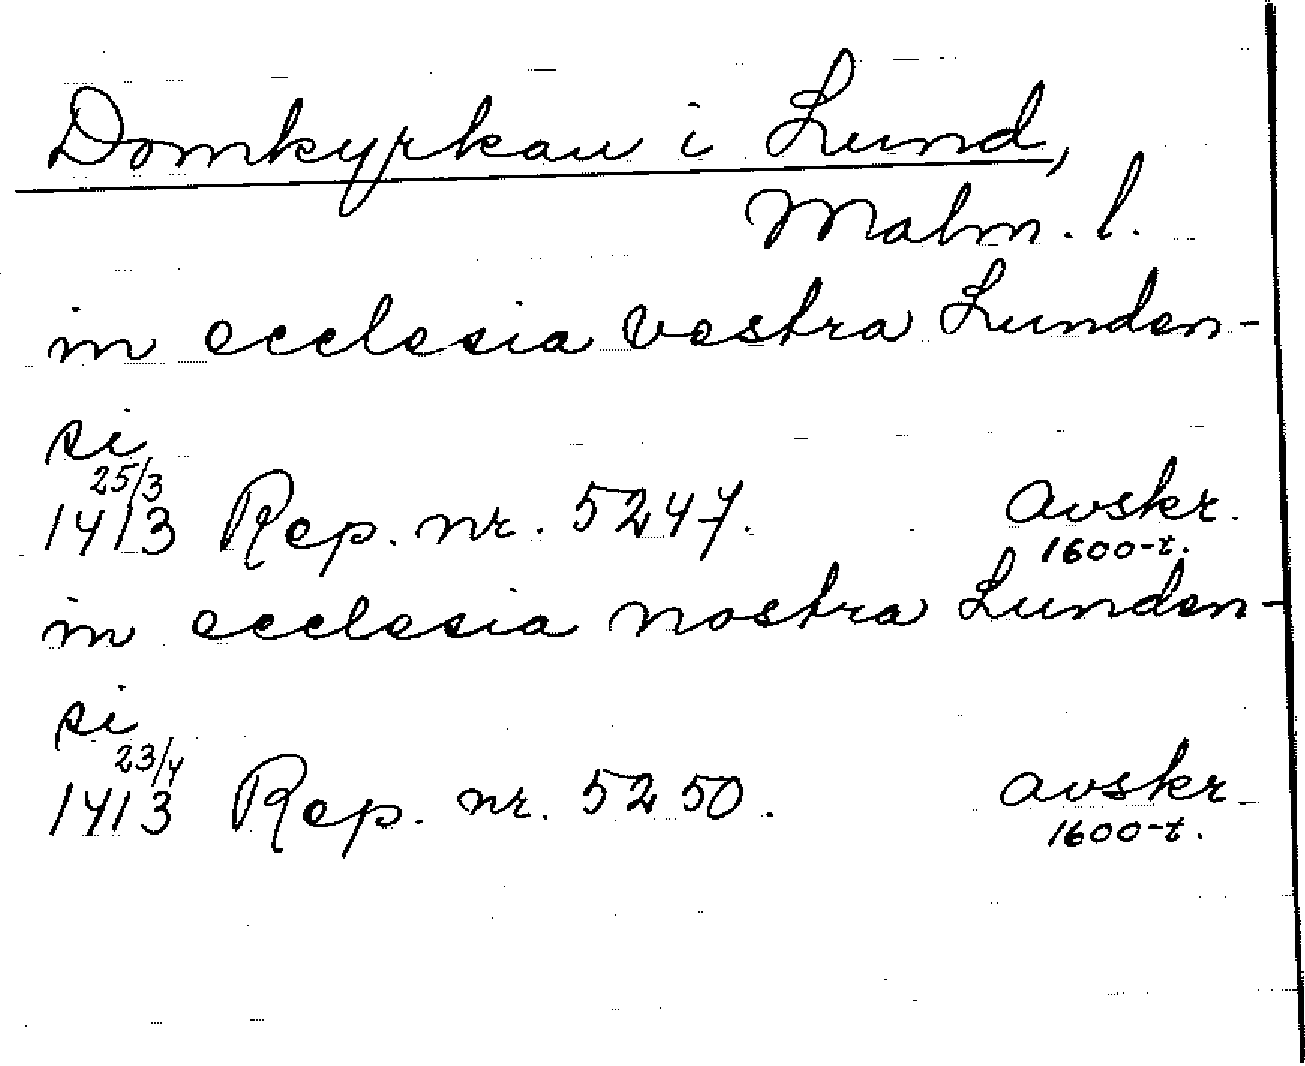 Domkyrkan i Lund,
Malm. l.
in ecclesia vestra Lunden-
si
25/3
1413 Rep. nr. 5247. avskr.
1600-t.
in ecclesia nostra Lunden-
si
23/4
1413 Rep. nr. 5250. avskr.
1600-t.